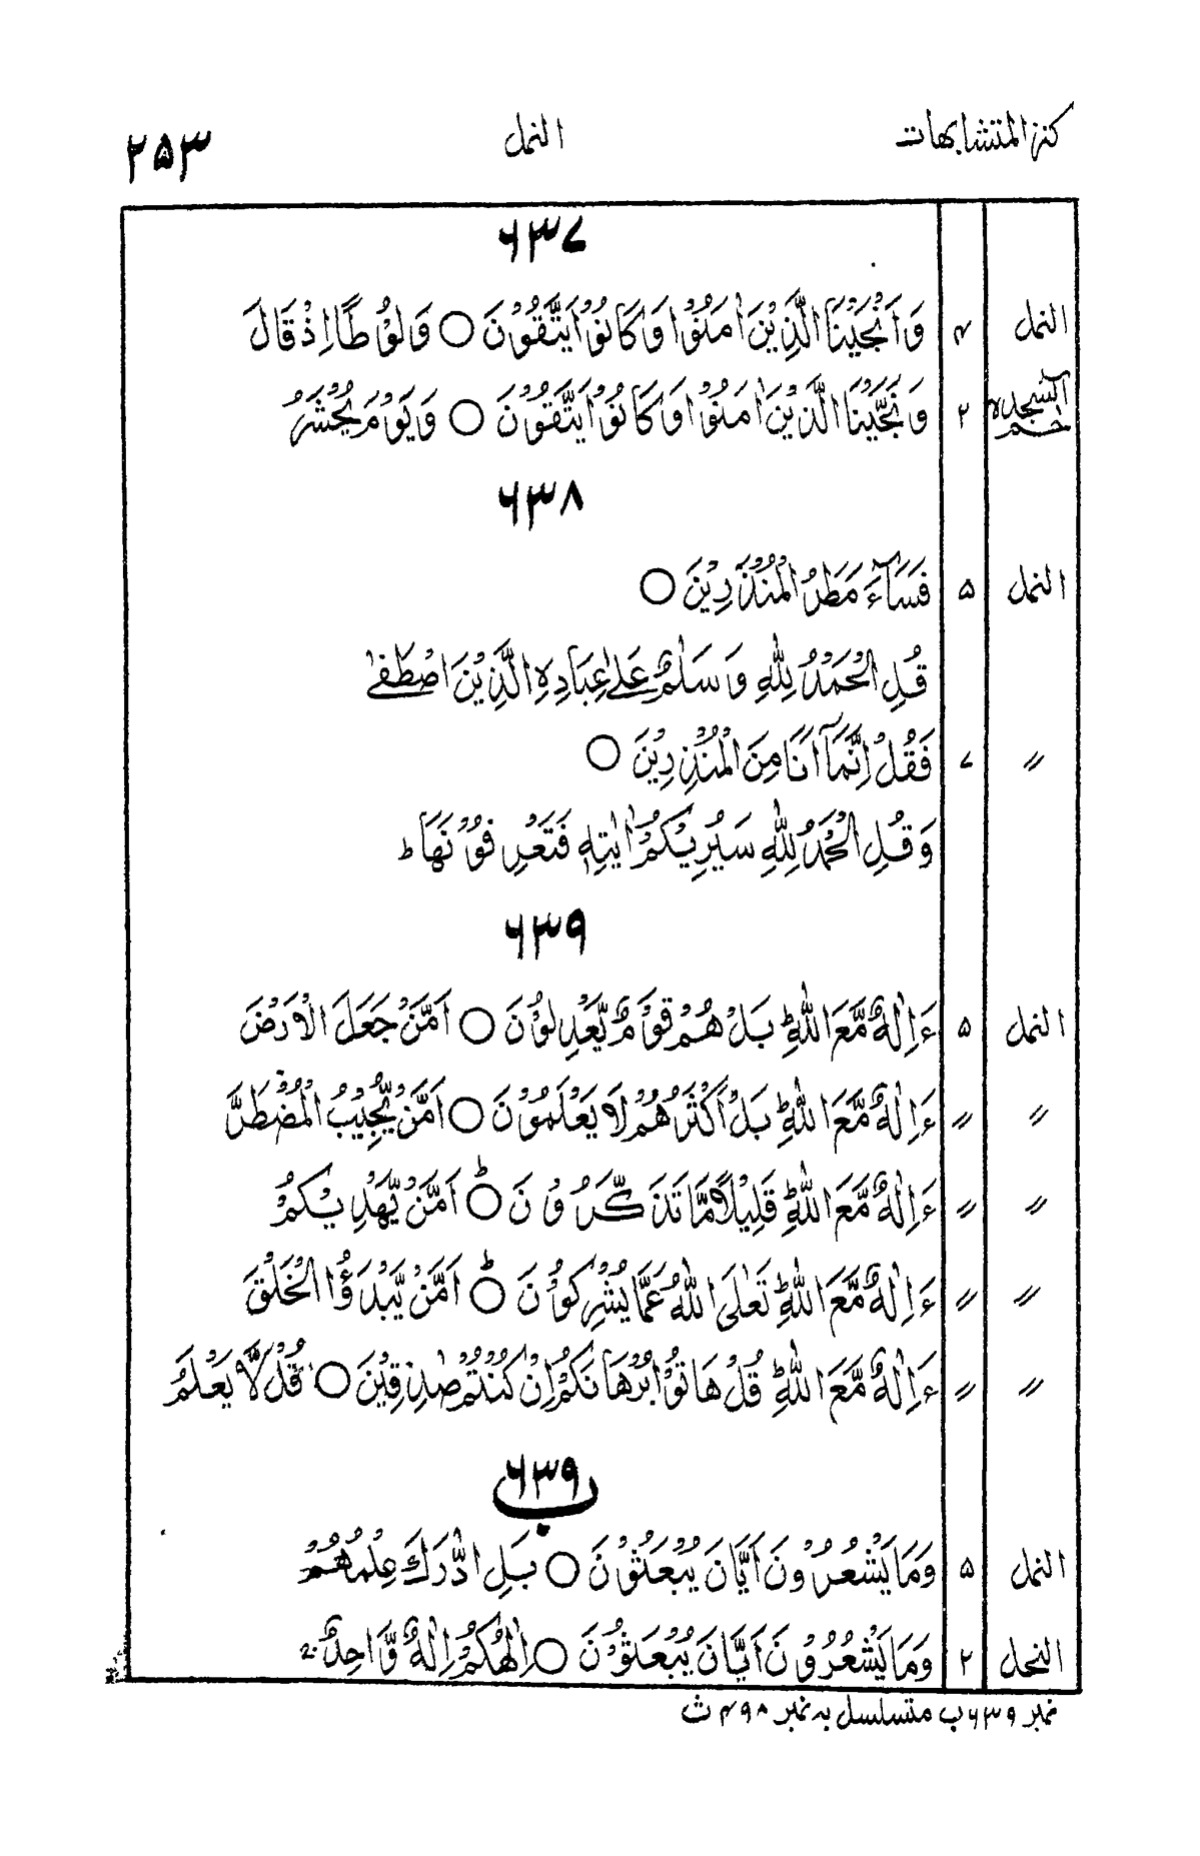 كنز المتشابهات النمل ۲۵۳
۶۳۷
النمل ۴ وَاَنْجَيْنَا الَّذِيْنَ اٰمَنُوْا وَكَانُوْا يَتَّقُوْنَ ○ وَلُوْطًا اِذْ قَالَ
حٰم السجدة ۲ وَنَجَّيْنَا الَّذِيْنَ اٰمَنُوْا وَكَانُوْا يَتَّقُوْنَ ○ وَيَوْمَ يُحْشَرُ
۶۳۸
النمل ۵ فَسَآءَ مَطَرُ الْمُنْذَرِيْنَ ○
قُلِ الْحَمْدُ لِلّٰهِ وَسَلٰمٌ عَلٰى عِبَادِهِ الَّذِيْنَ اصْطَفٰى
〃 ۷ فَقُلْ اِنَّمَآ اَنَا مِنَ الْمُنْذِرِيْنَ ○
وَقُلِ الْحَمْدُ لِلّٰهِ سَيُرِيْكُمْ اٰيٰتِهٖ فَتَعْرِفُوْنَهَا ط
۶۳۹
النمل ۵ ءَاِلٰهٌ مَّعَ اللّٰهِ ط بَلْ هُمْ قَوْمٌ يَّعْدِلُوْنَ ○ اَمَّنْ جَعَلَ الْاَرْضَ
〃 〃 ءَاِلٰهٌ مَّعَ اللّٰهِ ط بَلْ اَكْثَرُهُمْ لَا يَعْلَمُوْنَ ○ اَمَّنْ يُّجِيْبُ الْمُضْطَرَّ
〃 〃 ءَاِلٰهٌ مَّعَ اللّٰهِ ط قَلِيْلًا مَّا تَذَكَّرُوْنَ ○ ط اَمَّنْ يَّهْدِيْكُمْ
〃 〃 ءَاِلٰهٌ مَّعَ اللّٰهِ ط تَعٰلَى اللّٰهُ عَمَّا يُشْرِكُوْنَ ○ ط اَمَّنْ يَّبْدَؤُا الْخَلْقَ
〃 〃 ءَاِلٰهٌ مَّعَ اللّٰهِ ط قُلْ هَاتُوْا بُرْهَانَكُمْ اِنْ كُنْتُمْ صٰدِقِيْنَ ○ قُلْ لَّا يَعْلَمُ
۶۳۹ ب
النمل ۵ وَمَا يَشْعُرُوْنَ اَيَّانَ يُبْعَثُوْنَ ○ بَلِ ادّٰرَكَ عِلْمُهُمْ
النحل ۲ وَمَا يَشْعُرُوْنَ اَيَّانَ يُبْعَثُوْنَ ○ اِلٰهُكُمْ اِلٰهٌ وَّاحِدٌ ج
نمبر ۶۳۹ ب متسلسل بہ نمبر ۴۹۸ ث